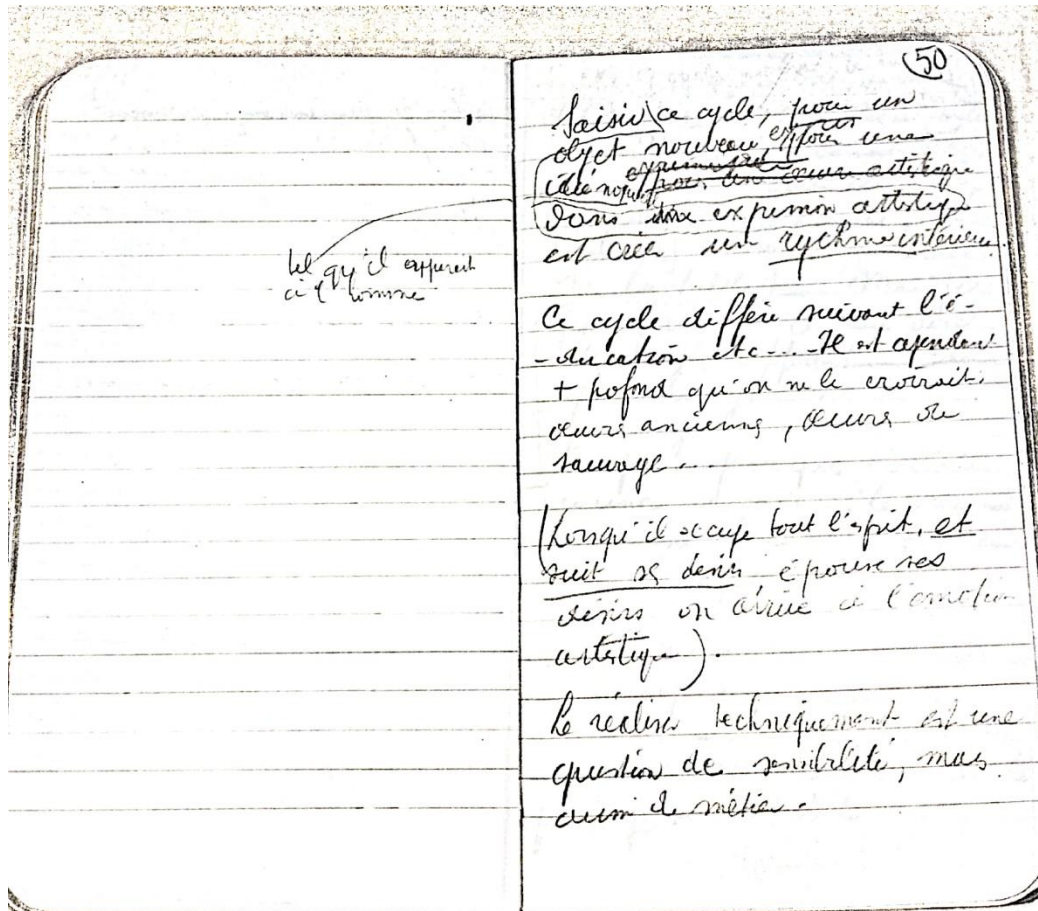 tel qu'il apparait
à l'homme
50
Saisir ce cycle, pour un
objet nouveau, pour une
idée
pour une œuvre artistique
dans une expression artistique
est créer un rythme intérieur.
Ce cycle diffère suivant l'é-
-ducation etc... Il est cependant
+ profond qu'on ne le croirait.
œuvres anciennes, œuvres de
sauvage...
(Lorsqu'il occupe tout l'esprit, et
suit ses désirs, épouse ses
désirs on arrive à l'émotion
artistique).
Le réaliser techniquement est une
question de sensibilité, mais
aussi de métier.